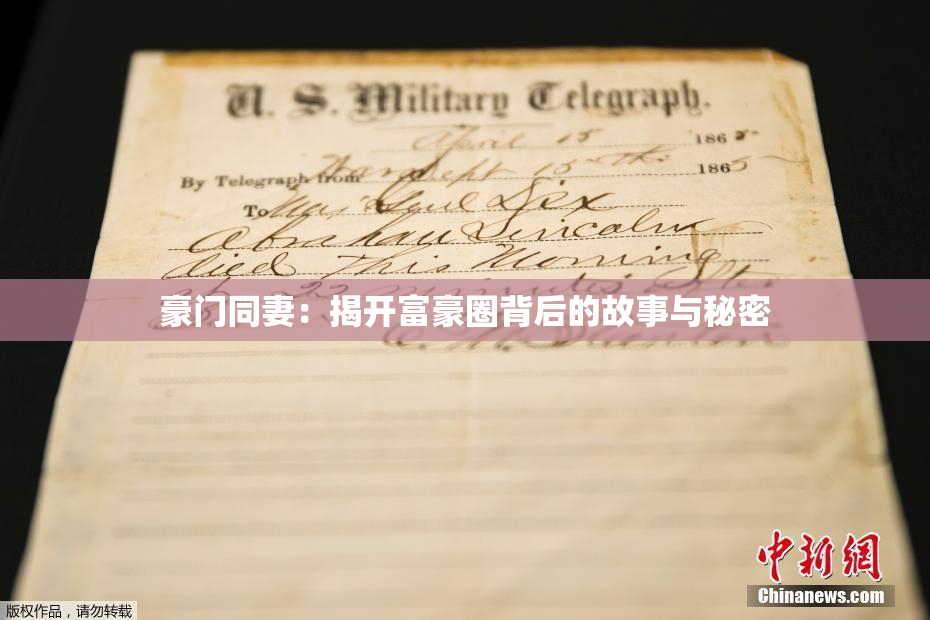 U. S. Military Telegraph.
April 15 1865
By Telegraph from War Dept 15th 1865
To Maj Genl Dix
Abraham Lincoln
died This Morning
at 22 minutes after
豪门同妻：揭开富豪圈背后的故事与秘密
E. M. Stanton
中新网
Chinanews.com
版权作品，请勿转载